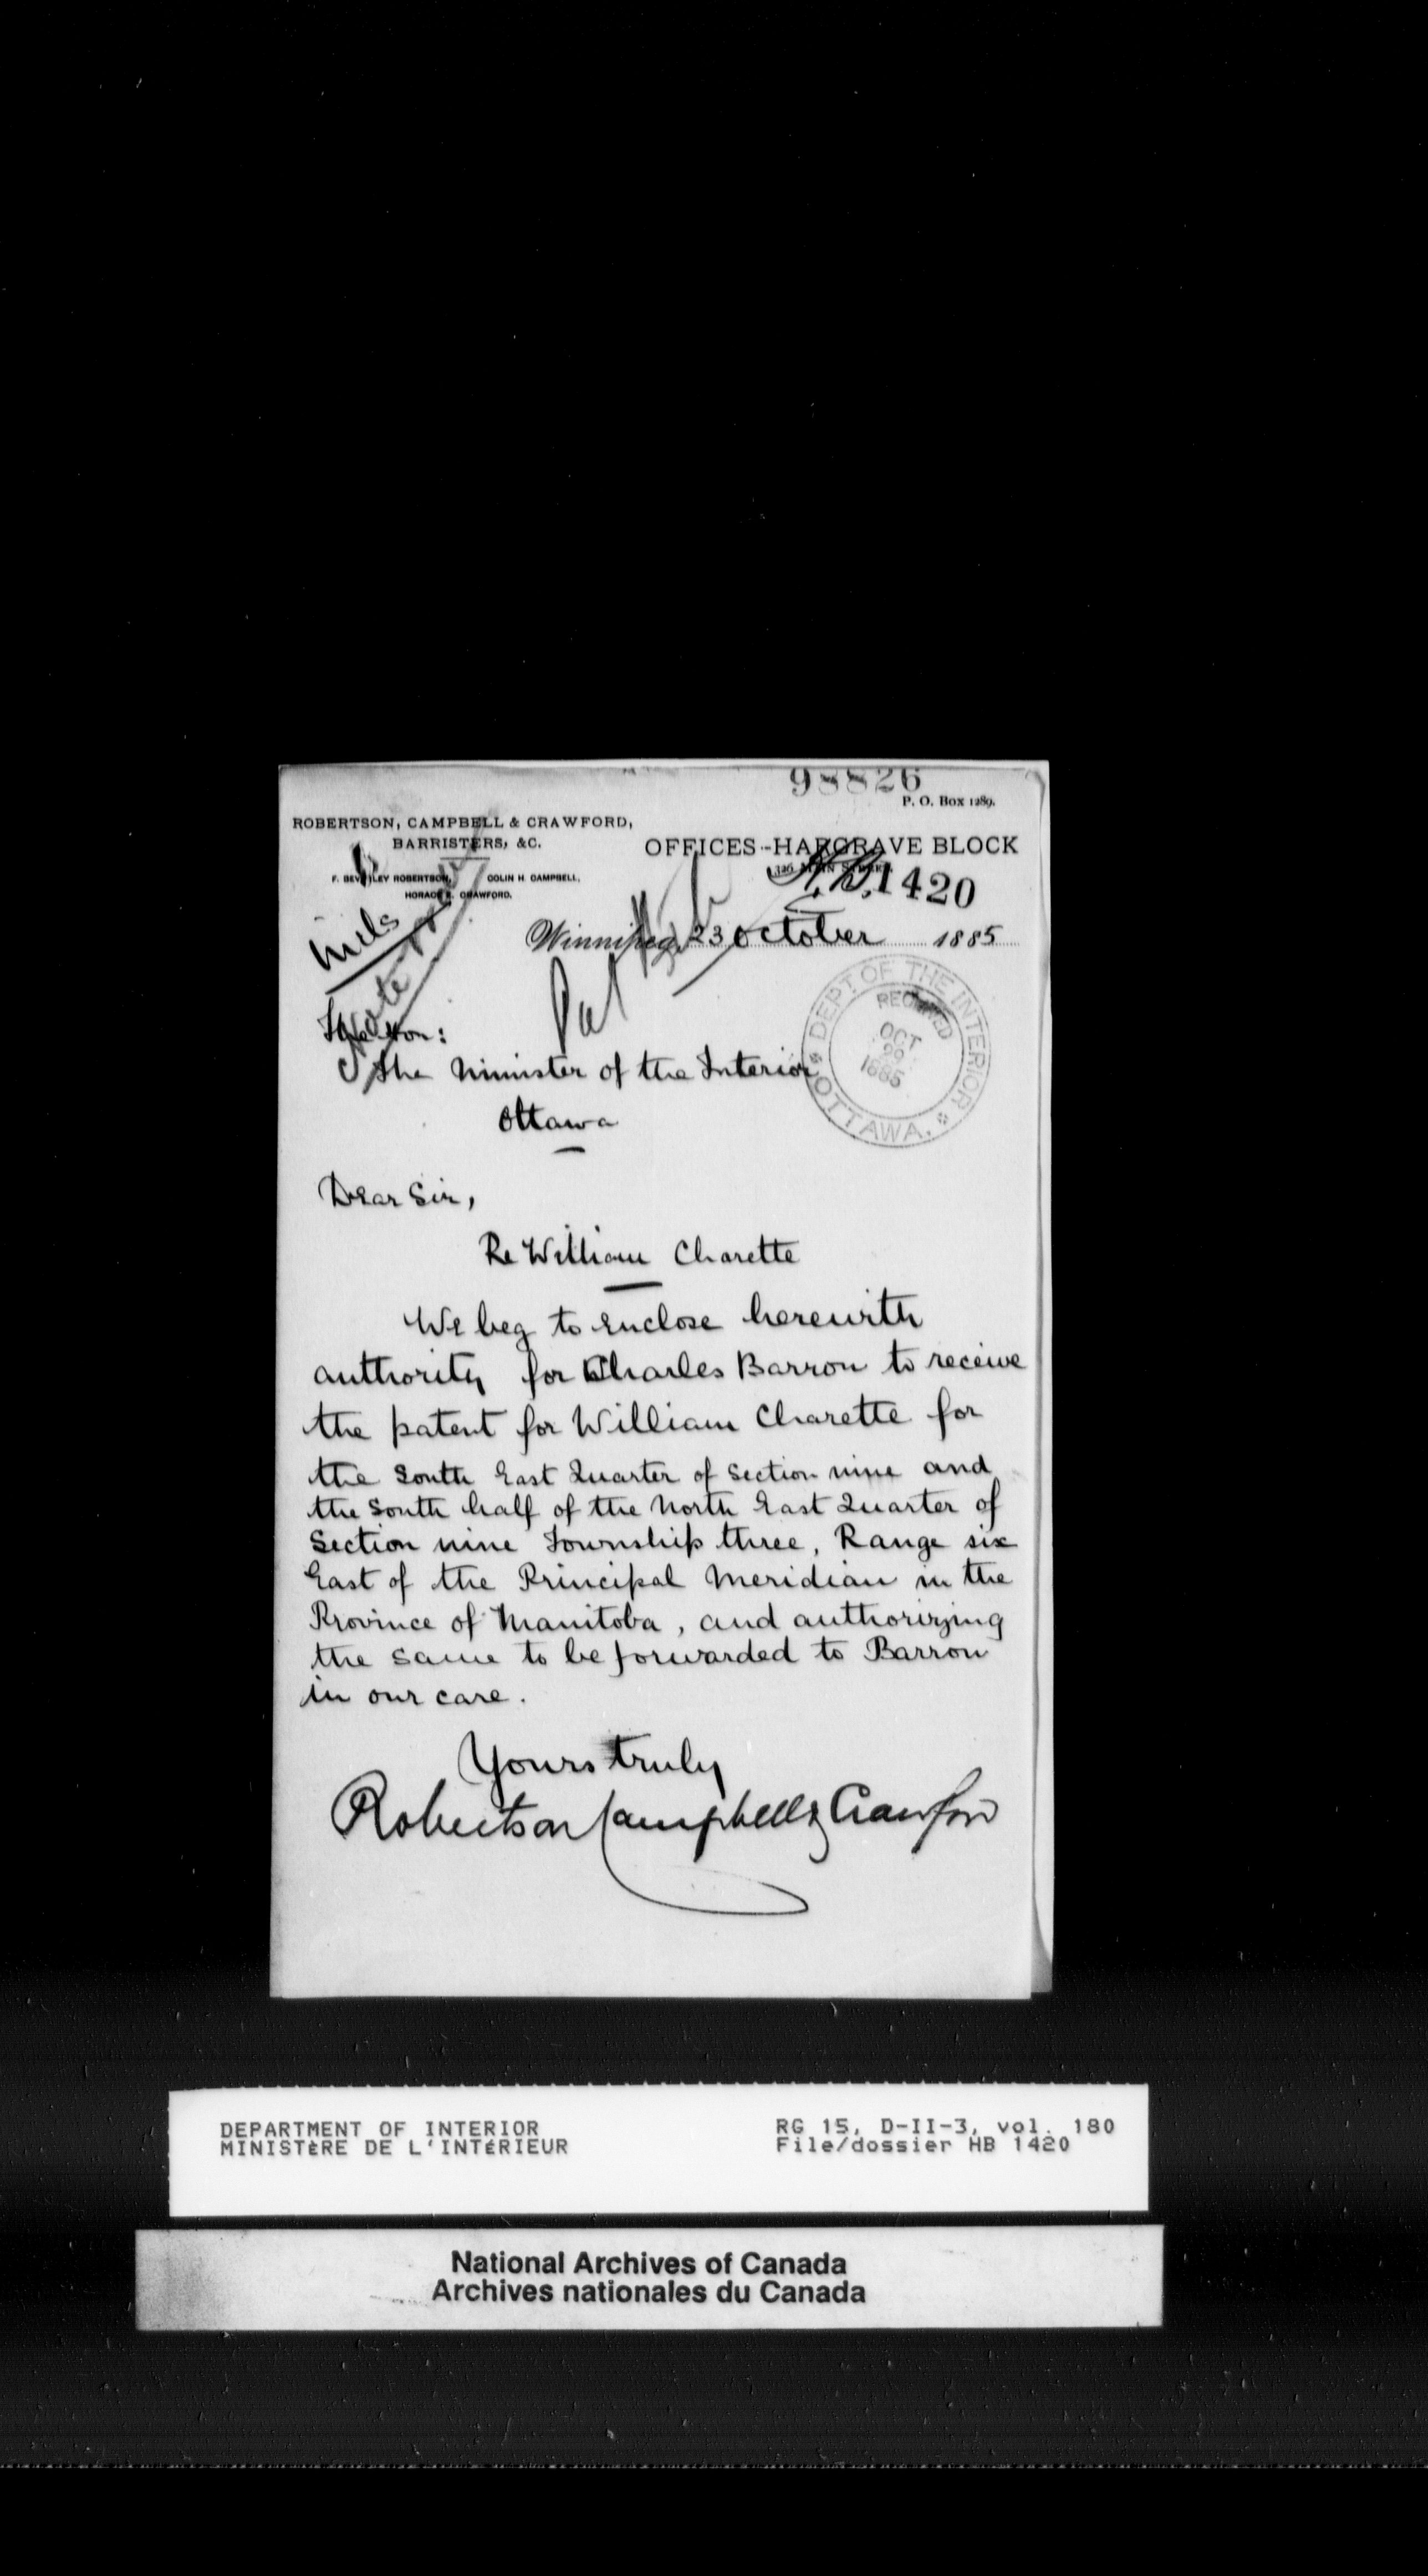 98826
P. O. Box 1289.
ROBERTSON, CAMPBELL & CRAWFORD,
BARRISTERS, &C.
OFFICES--HARGRAVE BLOCK
326 MAIN STREET
F. BEVERLEY ROBERTSON, COLIN H. CAMPBELL,
HORACE E. CRAWFORD.
H.B. 1420
Winnipeg, 23 October 1885
The Hon:
The Minister of the Interior
Ottawa
DEPT. OF THE INTERIOR
RECEIVED
OCT
29
1885
OTTAWA.
Dear Sir,
Re William Charette
We beg to enclose herewith
authority for Charles Barron to receive
the patent for William Charette for
the South East Quarter of Section nine and
the South half of the North East Quarter of
Section nine Township three, Range six
East of the Principal Meridian in the
Province of Manitoba, and authorizing
the same to be forwarded to Barron
in our care.
Yours truly
Robertson Campbell & Crawford
DEPARTMENT OF INTERIOR
MINISTÈRE DE L'INTÉRIEUR
RG 15, D-II-3, vol. 180
File/dossier HB 1420
National Archives of Canada
Archives nationales du Canada